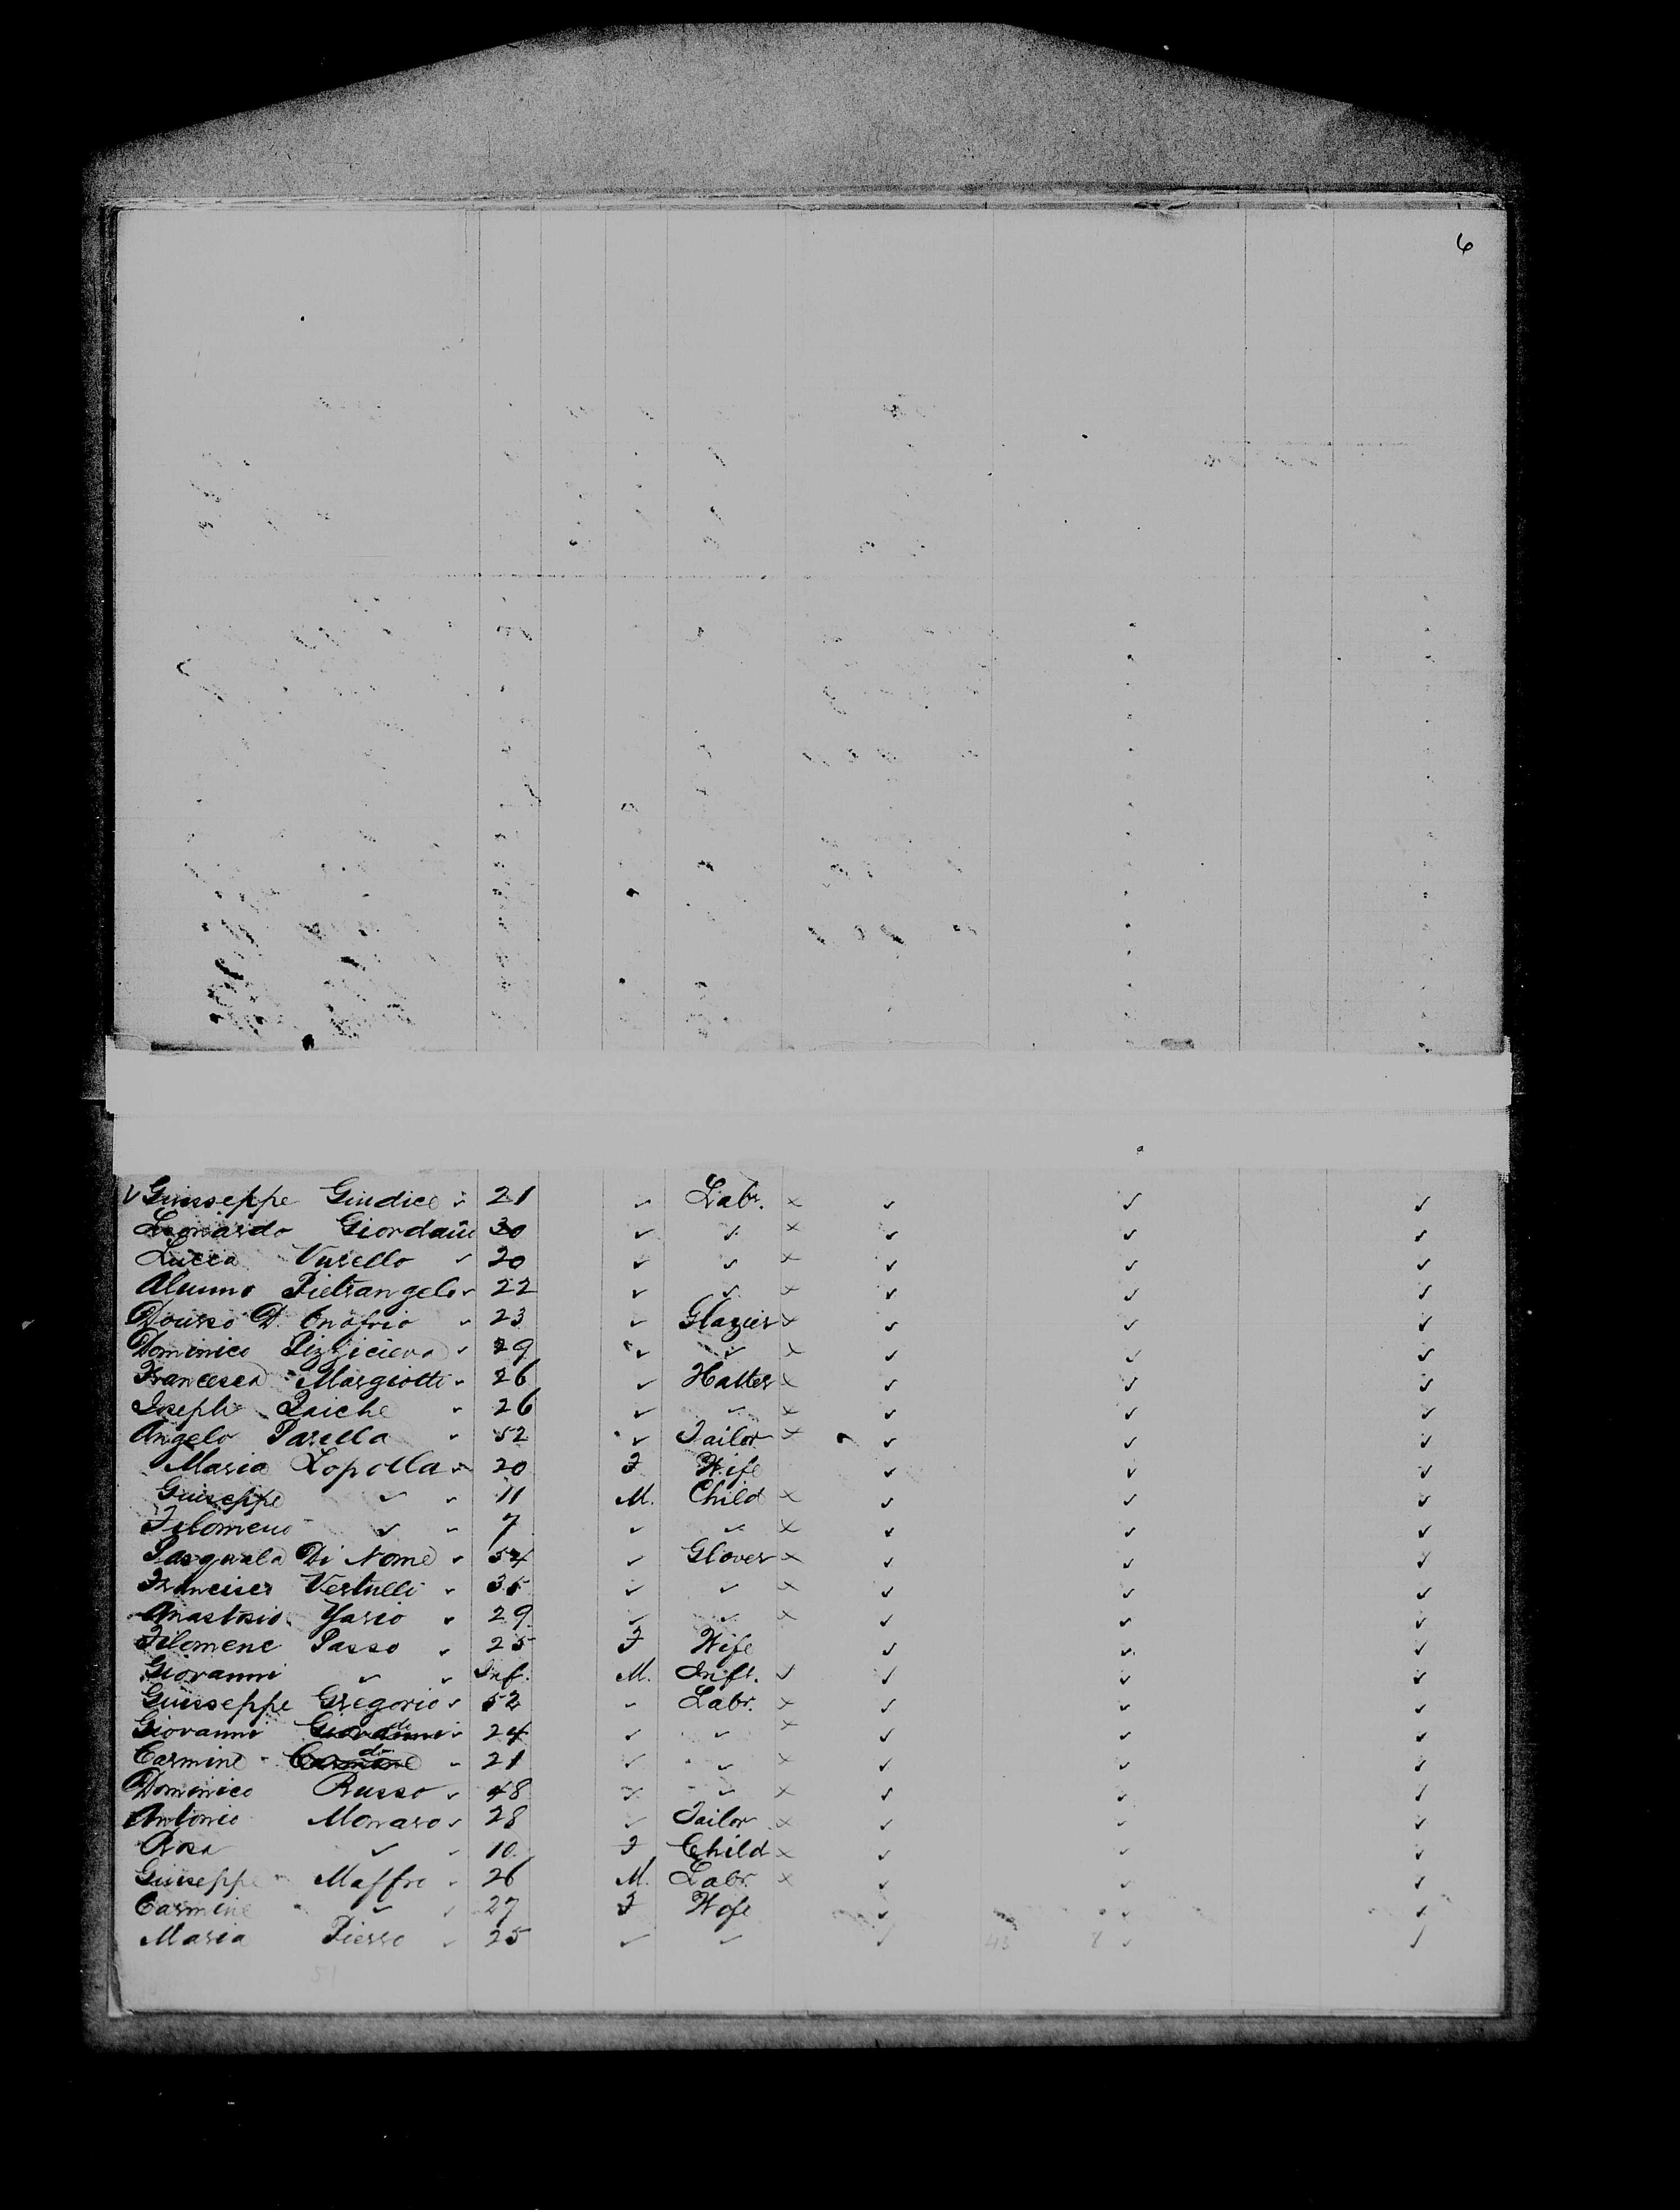 6
✓ Guisseppe Giudice ✓ 21 ✓ Labr. × ✓ ✓ ✓
Leonardo Giordani 30 ✓ ✓ × ✓ ✓ ✓
Lucca Vurello ✓ 20 ✓ ✓ × ✓ ✓ ✓
Alunno Pietrangelo ✓ 22 ✓ ✓ × ✓ ✓ ✓
D. Onofrio ✓ 23 ✓ Glazier × ✓ ✓ ✓
Dominico ✓ 29 ✓ ✓ × ✓ ✓ ✓
Francesca Margiotti ✓ 26 ✓ Hatter × ✓ ✓ ✓
Joseph ✓ 26 ✓ ✓ × ✓ ✓ ✓
Angelo Parella ✓ 52 ✓ Tailor × ✓ ✓ ✓
Maria Lopolla ✓ 20 F Wife ✓ ✓ ✓
Guiseppe ✓ ✓ 11 M. Child × ✓ ✓ ✓
Filomeno ✓ ✓ 7 ✓ ✓ × ✓ ✓ ✓
Pasquala Di Nome ✓ 54 ✓ Glover × ✓ ✓ ✓
Vertulli ✓ 35 ✓ ✓ × ✓ ✓ ✓
Anastosio Yario ✓ 29 ✓ ✓ × ✓ ✓ ✓
Filomene Passo ✓ 25 F Wife ✓ ✓ ✓
Giovanni ✓ ✓ Inf. M. Inft. ✓ ✓ ✓ ✓
Guisseppe Gregorio ✓ 52 ✓ Labr. × ✓ ✓ ✓
Giovanni do ✓ 24 ✓ ✓ × ✓ ✓ ✓
Carmine do ✓ 21 ✓ ✓ × ✓ ✓ ✓
Dominico Russo ✓ 48 ✓ ✓ × ✓ ✓ ✓
Antonio Monaro ✓ 28 ✓ Tailor × ✓ ✓ ✓
Rosa ✓ ✓ 10 F Child × ✓ ✓ ✓
Guiseppe Maffro ✓ 26 M. Labr. × ✓ ✓ ✓
Carmine ✓ ✓ 27 F Wife ✓ ✓ ✓
Maria Pierro ✓ 25 ✓ ✓ ✓ 48 8 ✓ ✓
51